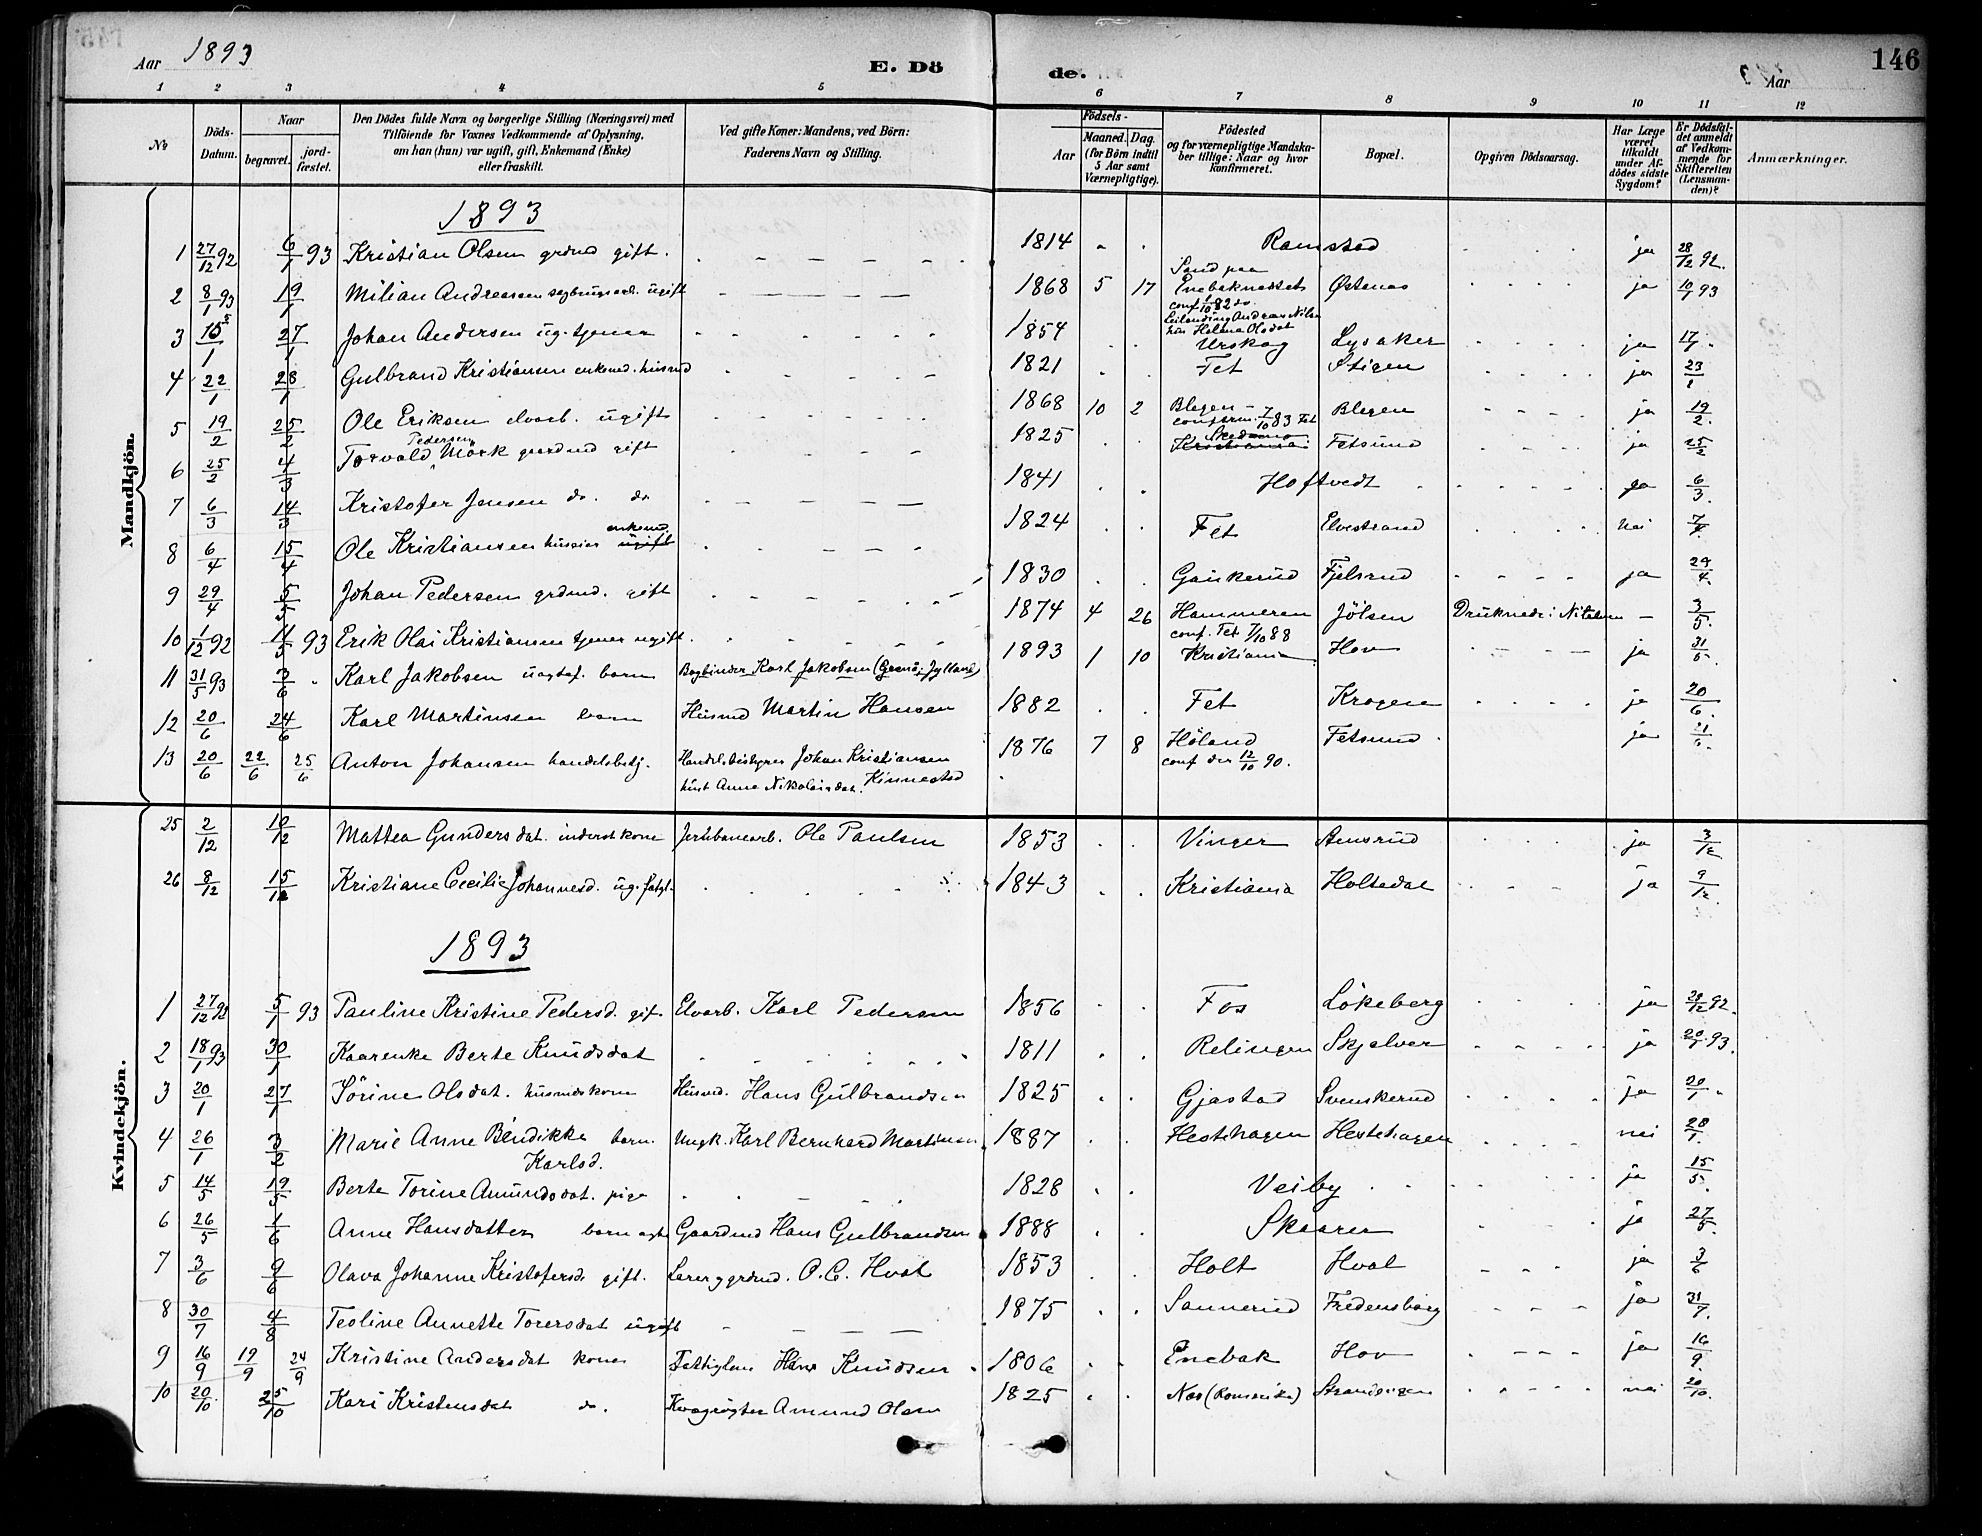 146
Aar 1893 E. Dö de. Aar
1 2 3 4 5 6 7 8 9 10 11 12
№ Döds-Datum. Naar begravet. jord-fæstet. Den Dödes fulde Navn og borgerlige Stilling (Næringsvei) med Tilföiende for Voxnes Vedkommende af Oplysning, om han (hun) var ugift, gift, Enkemand (Enke) eller fraskilt. Ved gifte Koner: Mandens, ved Börn: Faderens Navn og Stilling. Födsels- Aar Maaned. Dag. (for Börn indtil 5 Aar samt Værnepligtige). Födested og for værnepligtige Mandskaber tillige: Naar og hvor konfirmeret. Bopæl. Opgiven Dödsaarsag. Har Læge været tilkaldt under Afdödes sidste Sygdom? Er Dödsfaldet anmeldt af Vedkommende for Skifteretten (Lensmanden)? Anmærkninger.
Mandkjön.
1893
1 27/12 92 6/1 93 Kristian Olsen grdmd gift. 1814 Ramstad ja 28/12 92.
2 8/1 93 19/1 Milian Andreassen sagbrugsarb. ugift 1868 5 17 Sand paa Enebaknesset conf 1/10 82 do. Østenes ja 10/1 93
3 15/1 27/1 Johan Andersen ug. tjener 1854 Urskog Lysaker ja 17/1
4 22/1 28/1 Gulbrand Kristiansen enkemd. husmd 1821 Fet Stigen ja 23/1
5 19/2 25/2 Ole Eriksen elvarb. ugift 1868 10 2 Blegen conferm. 7/10 83 Fet Blegen ja 19/2.
6 25/2 4/3 Torvald Pedersen Mörk gaardmd gift 1825 Skedsmo Kristiania Fetsund ja 25/2
7 6/3 14/3 Kristofer Jensen do. do 1841 Hoftvedt ja 6/3.
8 6/4 15/4 Ole Kristiansen husmd enkemd. ugift 1824 Fet Elvestrand nei 7/4.
9 29/4 5/5 Johan Pedersen grdmd. gift 1830 Gankerud Fjelsrud ja 29/4.
10 1/12 92 11/5 93 Erik Olai Kristiansen tjener ugift. 1874 4 26 Hammeren conf. Fet 7/10 88 Jölsen Druknede i Nitelven – 3/5.
11 31/5 93 3/6 Karl Jakobsen uægtef. barn Bogbinder Karl Jakobsen (Grenå, Jylland) 1893 1 10 Kristiania Hov ja 31/5.
12 20/6 24/6 Karl Martinsen barn Husmd Martin Hansen 1882 Fet Krogen ja 20/6.
13 20/6 22/6 25/6 Anton Johansen handelsbetj. Handelsbestyrer Johan Kristiansen hust Anne Nikolaisdat. Kinnestad 1876 7 8 Höland conf der 12/10 90. Fetsund ja 21/6.
Kvindekjön.
25 2/12 10/12 Mattea Gundersdat. inderst kone Jernbanearb. Ole Paulsen 1853 Vinger Aamsrud ja 3/12
26 8/12 15/12 Kristiane Cecilie Johannesd. ug. fatgl. 1843 Kristiania Holtedal ja 9/12.
1893
1 27/12 92 5/1 93 Pauline Kristine Pedersd. gift Elvarb. Karl Pedersen 1856 Fos Lökeberg ja 28/12 92.
2 18/1 93 30/1 Kaarenke Berte Knudsdat 1811 Relingen Skjelver ja 20/1 93.
3 20/1 27/1 Sörine Olsdat. husmdskone Husmd. Hans Gulbrandsen 1825 Gjestad Svenskerud ja 20/1
4 26/1 3/2 Marie Anne Bendikke Karlsd. barn. Ungk. Karl Bernhard Martinsen 1887 Hestehagen Hestehagen nei 28/1.
5 14/5 19/5 Berte Torine Amundsdat. pige 1828 Veiby ja 15/5.
6 26/5 1/6 Anne Hansdatter barn ægte Gaardmd Hans Gulbrandsen 1888 Skaarer ja 27/5.
7 3/6 9/6 Olava Johanne Kristofersd. gift. Lærer og grdmd. O. C. Hval 1853 Holt Hval ja 3/6
8 30/7 4/8 Teoline Annette Torersdat ugift 1875 Sannerud Fredensborg ja 31/7.
9 16/9 19/9 24/9 Kristine Andersdat kone Fattiglem Hans Knudsen 1806 Enebak Hov ja 16/9.
10 20/10 25/10 Kari Kristensdat do. Kvægrøgter Amund Olsen 1825 Nes (Romerike) nei 20/10.